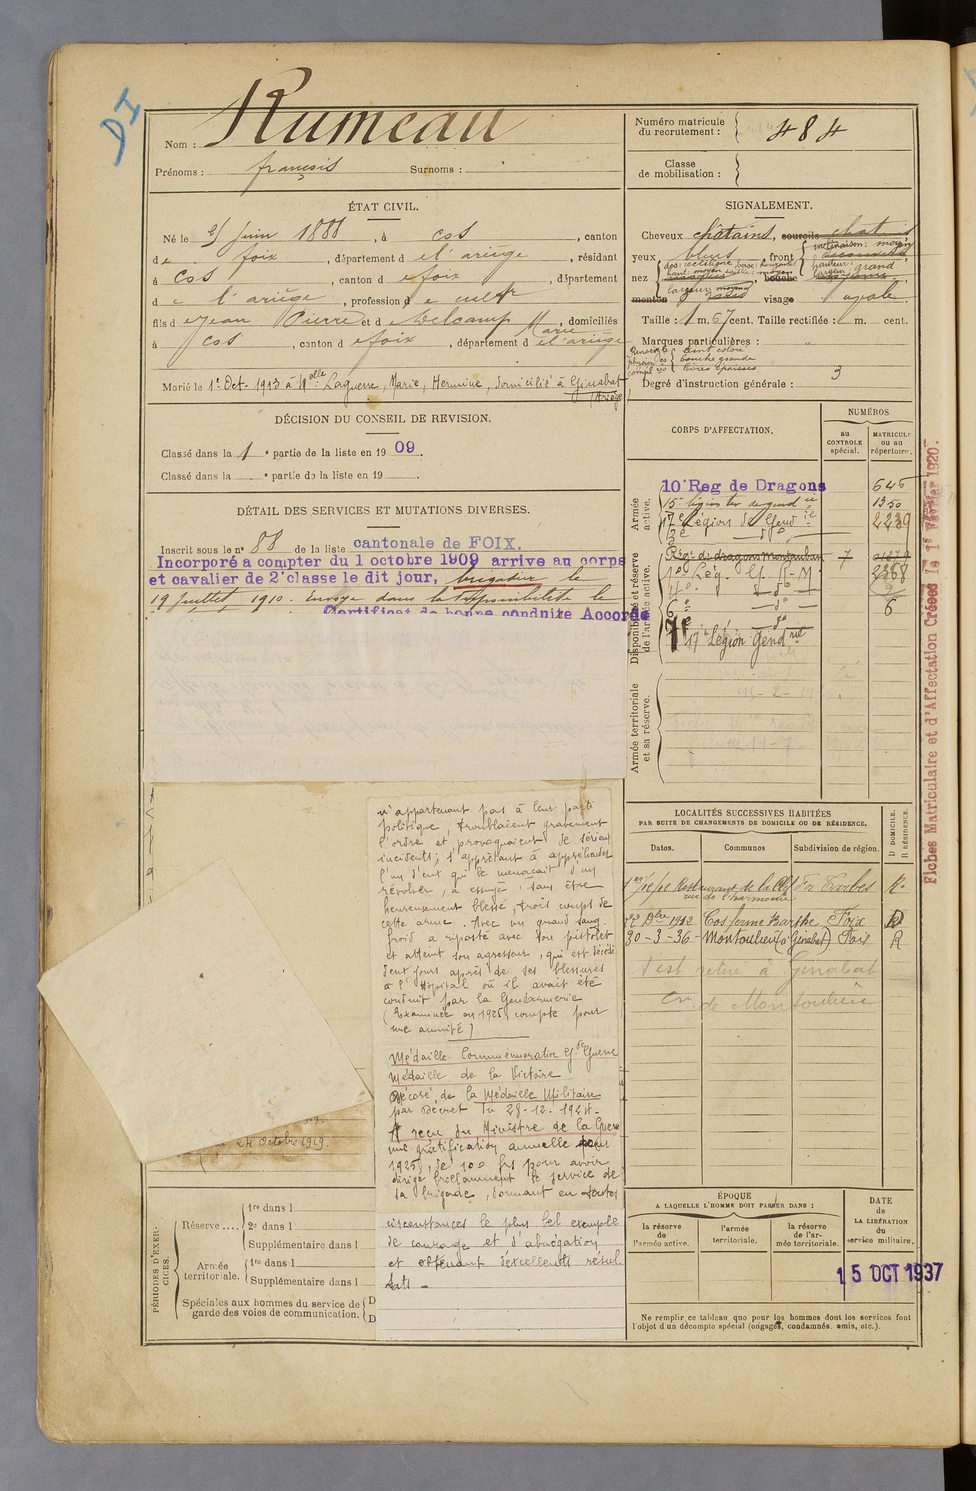 DI
Nom : Rumeau
Prénoms : françois Surnoms :
Numéro matricule du recrutement : 484
Classe de mobilisation :
ÉTAT CIVIL.
Né le 25 Juin 1888, à Cos, canton
de foix, département d e l'ariège, résidant
à Cos, canton d e foix, département
d e l'ariège, profession d e cultr
fils d e Jean Pierre et d e Delcamp Marie, domiciliés
à Cos, canton d e foix, département d e l'ariège
Marié le 1er Oct. 1913 à Melle Laguerre, Marie, Hermine, domicilié à Ginabat (Ariège)
SIGNALEMENT.
Cheveux châtains, sourcils chatains
yeux bleus front inclinaison : moyen
hauteur : grand
nez dos : rectiligne base : horizontal
haut : moyen saillie : moyen
largeur moyen
bouche
menton visage ovale
Taille : 1 m. 67 cent. Taille rectifiée : m. cent.
Marques particulières : "
teint coloré
bouche grande
lèvres épaisses
Degré d'instruction générale : 3
DÉCISION DU CONSEIL DE REVISION.
Classé dans la 1e partie de la liste en 1909.
Classé dans la e partie de la liste en 19 .
DÉTAIL DES SERVICES ET MUTATIONS DIVERSES.
Inscrit sous le n° 88 de la liste cantonale de FOIX.
Incorporé a compter du 1 octobre 1909 arrive au corps
et cavalier de 2e classe le dit jour, brigadier le
19 Juillet 1910. Envoyé dans la disponibilité le
Certificat de bonne conduite Accordé
n'appartenant pas à leur parti
politique, troublaient gravement
l'ordre et provoquaient de sérieux
incidents ; s'apprêtant à appréhender
l'un d'eux qui le menaçait d'un
révolver, a essuyé, sans être
heureusement blessé, trois coups de
cette arme. Avec un grand sang
froid a riposté avec son pistolet
et atteint son agresseur, qui est décédé
deux jours après de ses blessures
à l'Hôpital où il avait été
conduit par la Gendarmerie
(Examinée en 1925, compte pour
une annuité)
Médaille Commémorative Gde Guerre
Médaille de la Victoire
Décoré de la Médaille Militaire
par Décret du 28-12-1924.
A reçu du Ministre de la Guerre
une gratification annuelle pour
1925, de 100 frs pour avoir
dirigé brillamment le service de
sa brigade, donnant en toutes
circonstances le plus bel exemple
de courage et d'abnégation
et obtenant d'excellents résul
tats -
24 Octobre 1919.
PÉRIODES D'EXERCICES.
Réserve .... 1re dans l
2e dans l
Supplémentaire dans l
Armée territoriale. 1re dans l
Supplémentaire dans l
Spéciales aux hommes du service de garde des voies de communication. D
D
CORPS D'AFFECTATION.
NUMÉROS
AU CONTROLE spécial.
MATRICULE ou au répertoire.
Armée active.
10e Reg de Dragons 646
15e légion de gendie 1350
17e Légion de Gendie 2239
2e do
Disponibilité et réserve de l'armée active.
Rég. de dragons Montauban 7
1e Lég. G. R. M 2368
6e do 6
17e Légion Gendrie
Armée territoriale et sa réserve.
LOCALITÉS SUCCESSIVES HABITÉES
PAR SUITE DE CHANGEMENTS DE DOMICILE OU DE RÉSIDENCE.
Dates. Communes Subdivision de région. D DOMICILE. R RÉSIDENCE.
Tarbes R.
Dbre 1912 Cos ferme Barthe Foix D
30-3-36 - Montoulieu (Ginabat) Foix R
s'est retiré à Ginabat
Cne de Montoulieu
ÉPOQUE
A LAQUELLE L'HOMME DOIT PASSER DANS :
la réserve de l'armée active.
l'armée territoriale.
la réserve de l'armée territoriale.
DATE de LA LIBÉRATION du service militaire.
15 OCT 1937
Ne remplir ce tableau que pour les hommes dont les services font l'objet d'un décompte spécial (engagés, condamnés, omis, etc.).
Fiches Matriculaire et d'Affectation Créées le 1er Février 1920.